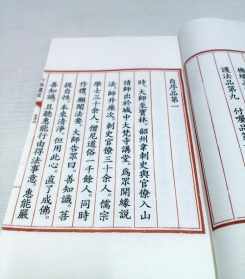 護法品第九 付囑品
自序品第一
時，大師至寶林。韶州韋刺史與官僚入山
請師出於城中大梵寺講堂，為眾開緣說
法。師升座次，刺史官僚三十餘人，儒宗
學士三十餘人，僧尼道俗一千餘人，同時
作禮，願聞法要。大師告眾曰：善知識，菩
提自性，本來清淨，但用此心，直了成佛。
善知識，且聽惠能行由得法事意。惠能嚴